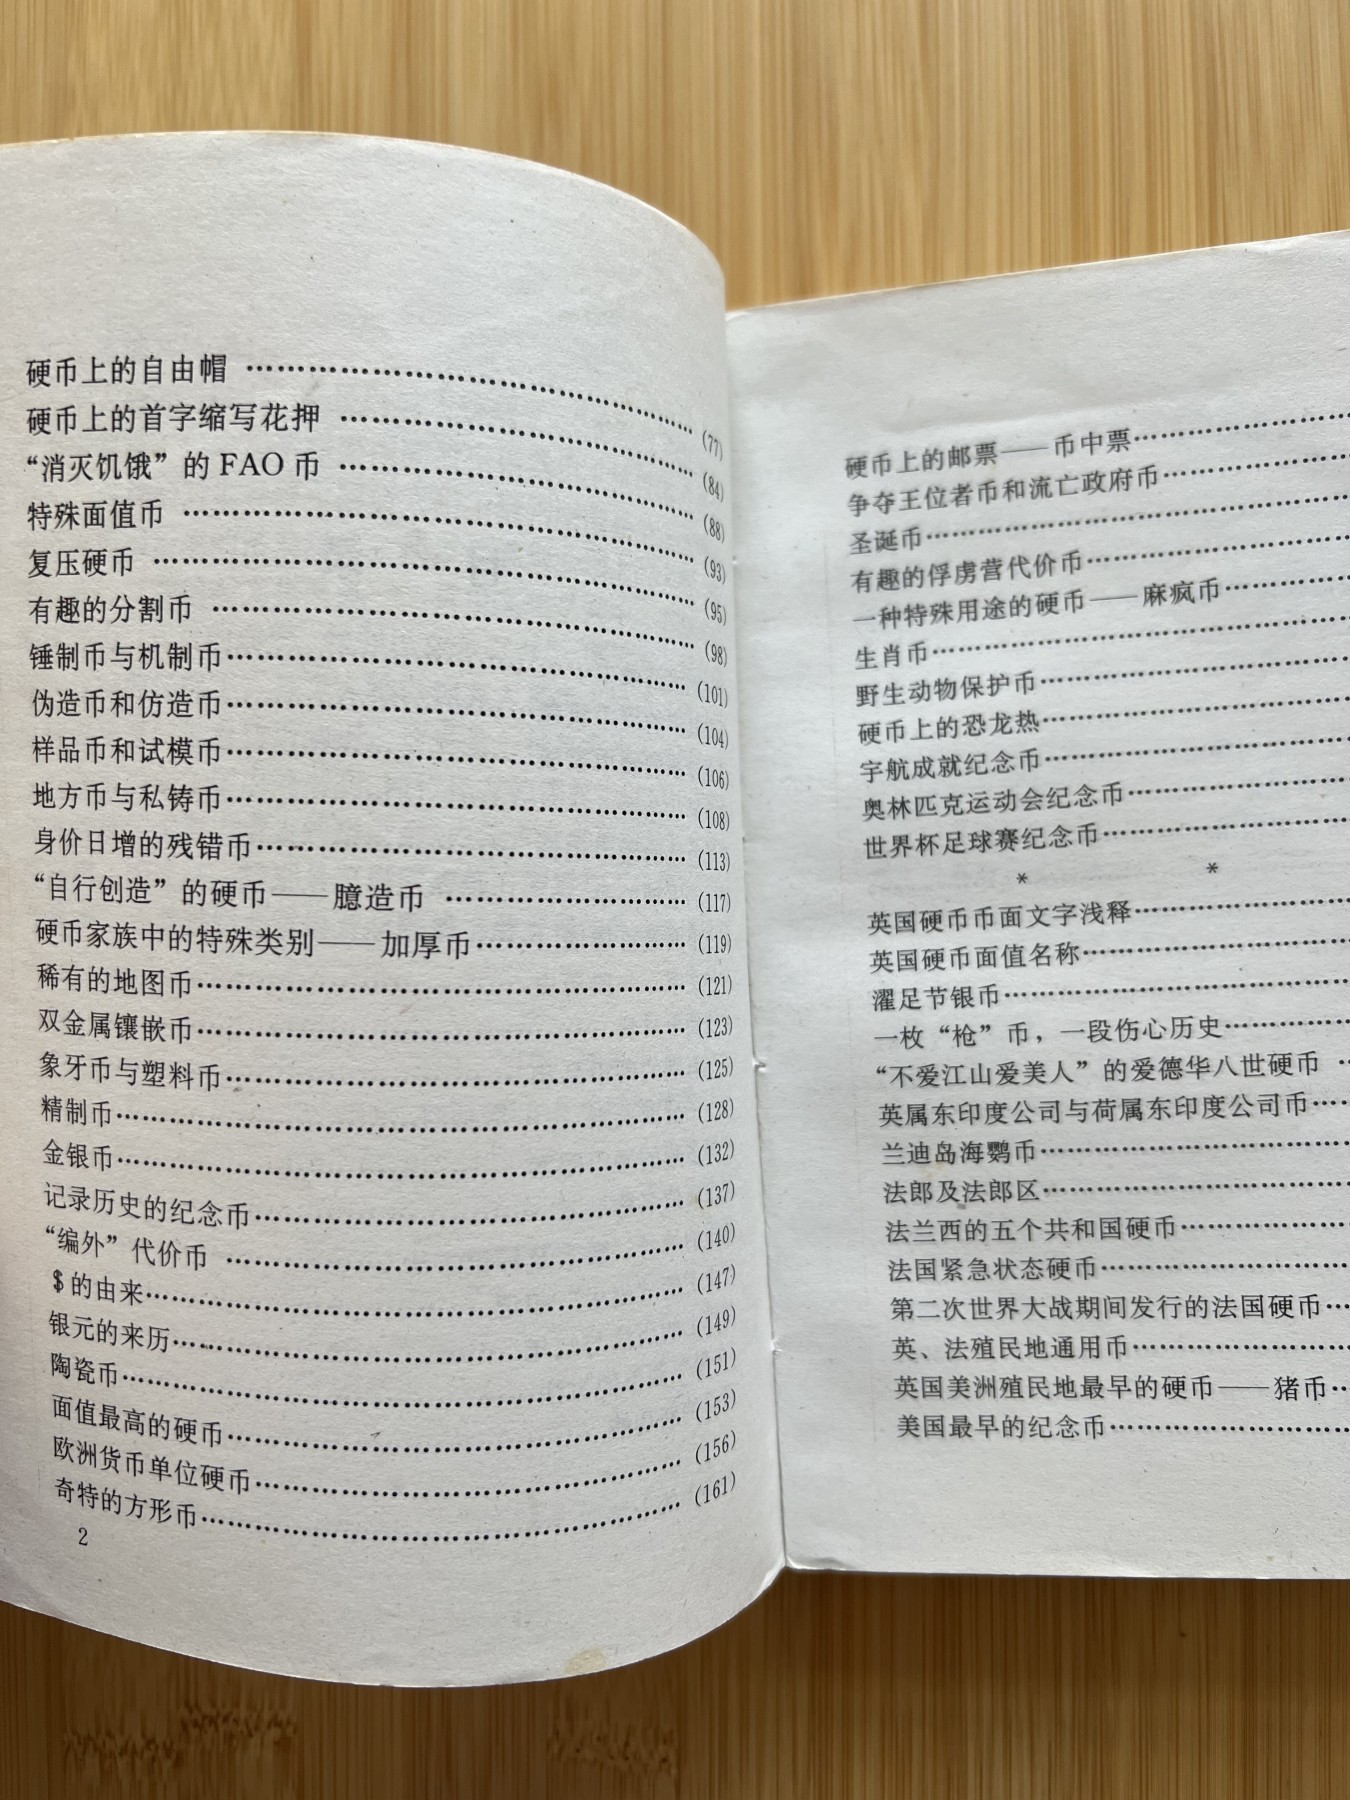 硬币上的自由帽 ……………………………… (77)
硬币上的首字缩写花押 ……………………………… (84)
“消灭饥饿”的 FAO 币 ……………………………… (88)
特殊面值币 ……………………………… (93)
复压硬币 ……………………………… (95)
有趣的分割币 ……………………………… (98)
锤制币与机制币……………………………… (101)
伪造币和仿造币……………………………… (104)
样品币和试模币……………………………… (106)
地方币与私铸币……………………………… (108)
身价日增的残错币……………………………… (113)
“自行创造”的硬币——臆造币 ……………………… (117)
硬币家族中的特殊类别——加厚币…………………… (119)
稀有的地图币……………………………… (121)
双金属镶嵌币……………………………… (123)
象牙币与塑料币……………………………… (125)
精制币……………………………… (128)
金银币……………………………… (132)
记录历史的纪念币……………………………… (137)
“编外”代价币 ……………………………… (140)
$的由来……………………………… (147)
银元的来历……………………………… (149)
陶瓷币……………………………… (151)
面值最高的硬币……………………………… (153)
欧洲货币单位硬币……………………………… (156)
奇特的方形币……………………………… (161)
2
硬币上的邮票——币中票……………………
争夺王位者币和流亡政府币……………………
圣诞币……………………
有趣的俘虏营代价币……………………
一种特殊用途的硬币——麻疯币……………
生肖币……………………
野生动物保护币……………………
硬币上的恐龙热……………………
宇航成就纪念币……………………
奥林匹克运动会纪念币……………………
世界杯足球赛纪念币……………………
* *
英国硬币币面文字浅释……………………
英国硬币面值名称……………………
濯足节银币……………………
一枚“枪”币，一段伤心历史……………
“不爱江山爱美人”的爱德华八世硬币 …
英属东印度公司与荷属东印度公司币……
兰迪岛海鹦币……………………
法郎及法郎区……………………
法兰西的五个共和国硬币……………………
法国紧急状态硬币……………………
第二次世界大战期间发行的法国硬币……
英、法殖民地通用币……………………
英国美洲殖民地最早的硬币——猪币……
美国最早的纪念币……………………